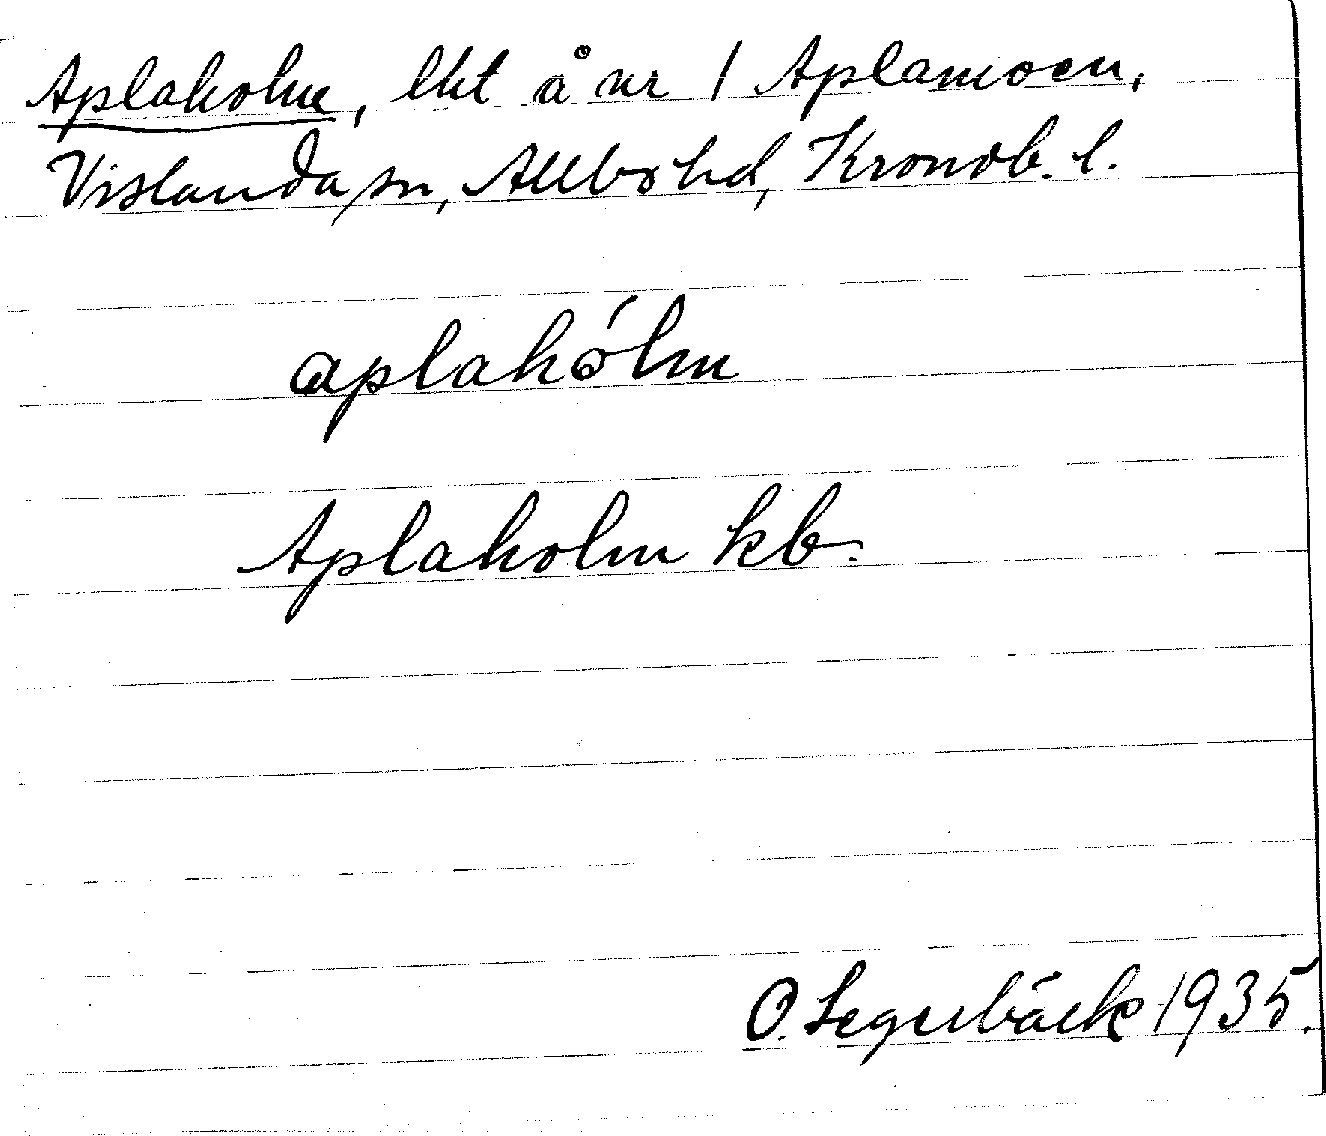 Aplaholm, lht å nr 1 Aplamoen,
Vislanda sn, Allbo hd, Kronob. l.
aplahólm
Aplaholm kb.
O. Segerbäck 1935.